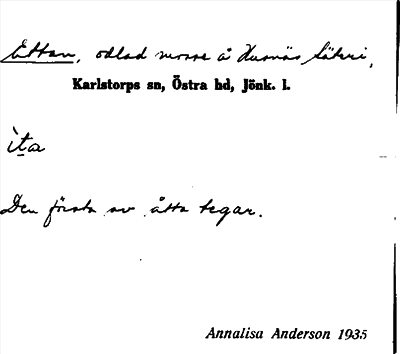 Ettan, odlad mosse å Husnäs säteri,
Karlstorps sn, Östra hd, Jönk. l.
ìta
Den första av åtta tegar.
Annalisa Anderson 1935